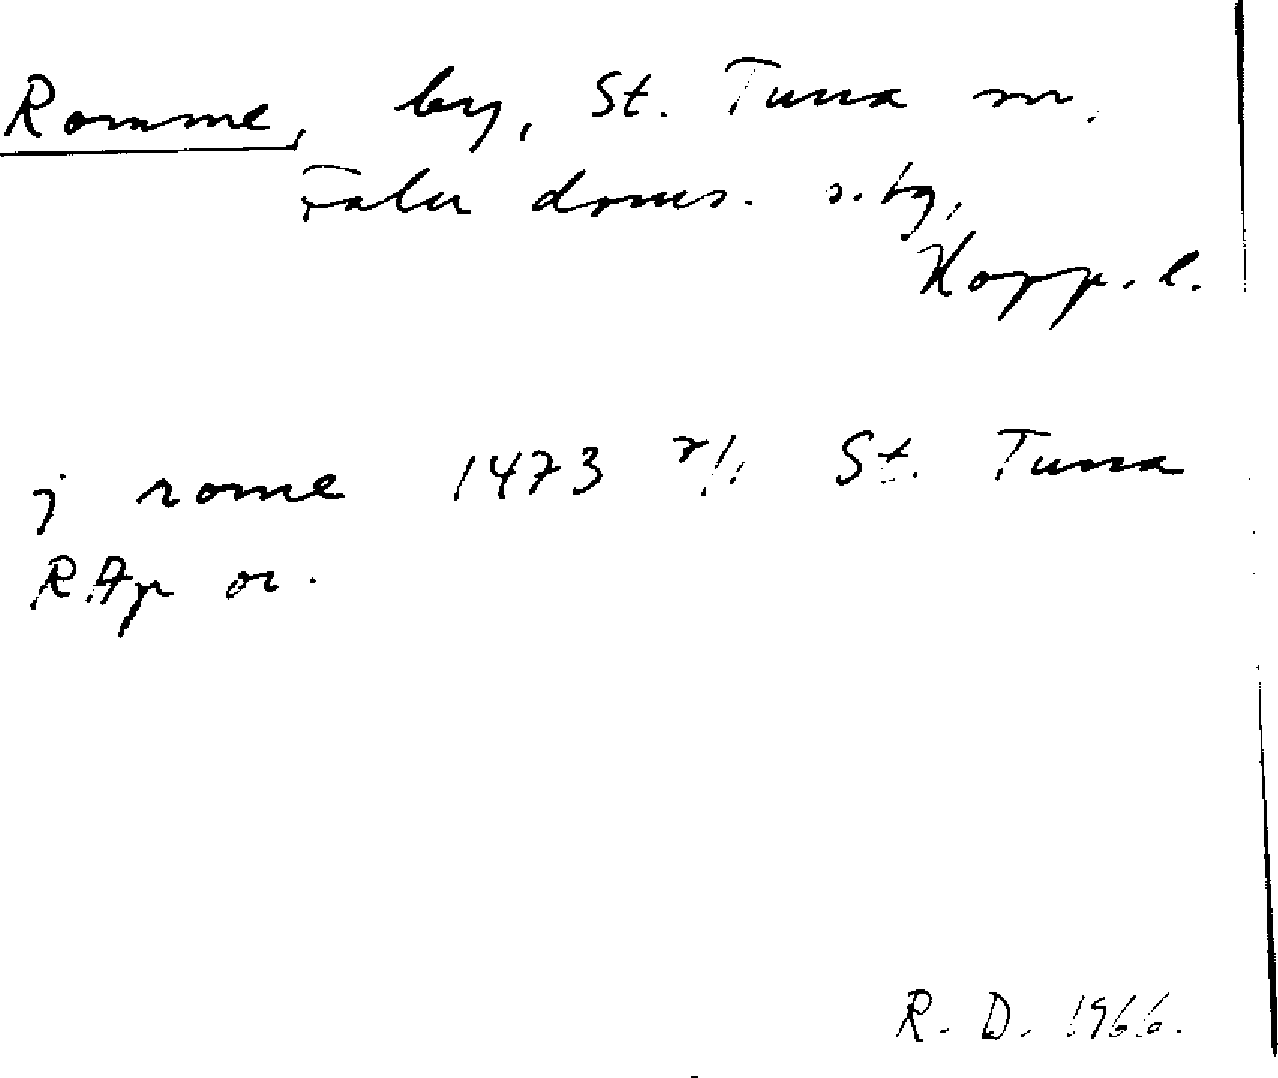 Romme, by, St. Tuna sn.
Falu doms. s. tg,
Kopp. l.
j rome 1473 2/1 St. Tuna
RAp or.
R. D. 1966.